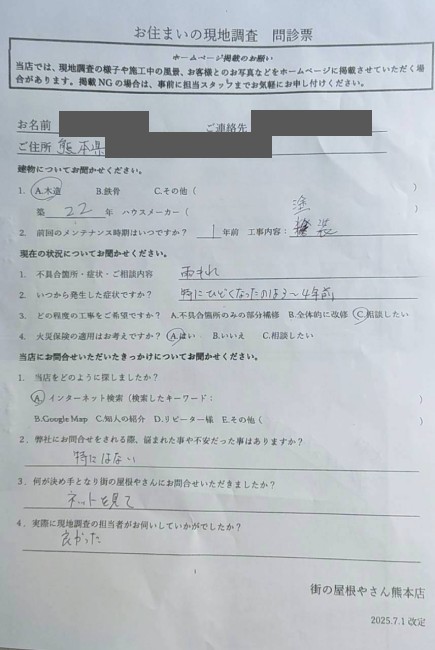 お住まいの現地調査 問診票
ホームページ掲載のお願い
当店では、現地調査の様子や施工中の風景、お客様とのお写真などをホームページに掲載させていただく場
合があります。掲載NGの場合は、事前に担当スタッフまでお気軽にお申し付けください。
お名前 ご連絡先
ご住所 熊本県
建物についてお聞かせください。
1. A.木造 B.鉄骨 C.その他( )
築 22 年 ハウスメーカー( )
2. 前回のメンテナンス時期はいつですか? 1 年前 工事内容: 塗装
現在の状況についてお聞かせください。
1. 不具合箇所・症状・ご相談内容 雨もれ
2. いつから発生した症状ですか? 特にひどくなったのは3〜4年前
3. どの程度の工事をご希望ですか? A.不具合箇所のみの部分補修 B.全体的に改修 C.相談したい
4. 火災保険の適用はお考えですか? A.はい B.いいえ C.相談したい
当店にお問合せいただいたきっかけについてお聞かせください。
1. 当店をどのように探しましたか?
A. インターネット検索(検索したキーワード: )
B.Google Map C.知人の紹介 D.リピーター様 E.その他( )
2. 弊社にお問合せをされる際、悩まれた事や不安だった事はありますか?
特にはない
3. 何が決め手となり街の屋根やさんにお問合せいただきましたか?
ネットを見て
4. 実際に現地調査の担当者がお伺いしていかがでしたか?
良かった
1
街の屋根やさん熊本店
2025.7.1 改定